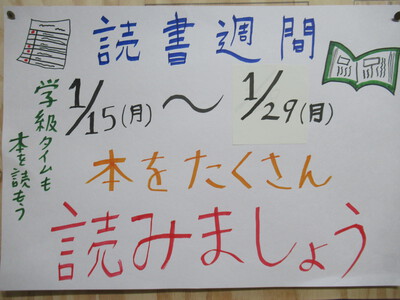 読書週間
1/15(月)〜1/29(月)
学級タイムも
本を読もう
本をたくさん
読みましょう